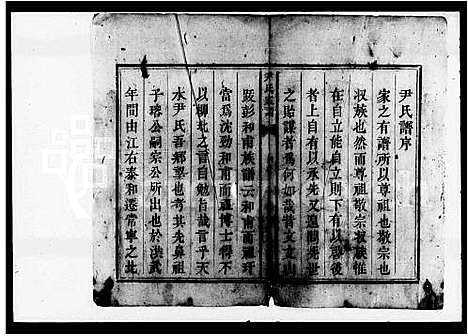 尹氏譜序
家之有譜所以尊祖也敬宗也
收族也然而尊祖敬宗收族惟
在自立能自立則下有以啟後
者上自有以承先又遑問先世
之貽謀者為何如哉昔文文山
跋彭和甫族譜云和甫而羅玶
當為沈勁和甫而祖博士得不
以柳玭之言自勉旨哉言乎天
水尹氏吾鄉望也考其先鼻祖
子瑢公嗣宗公所出也於洪武
年間由江右泰和遷常寧之北